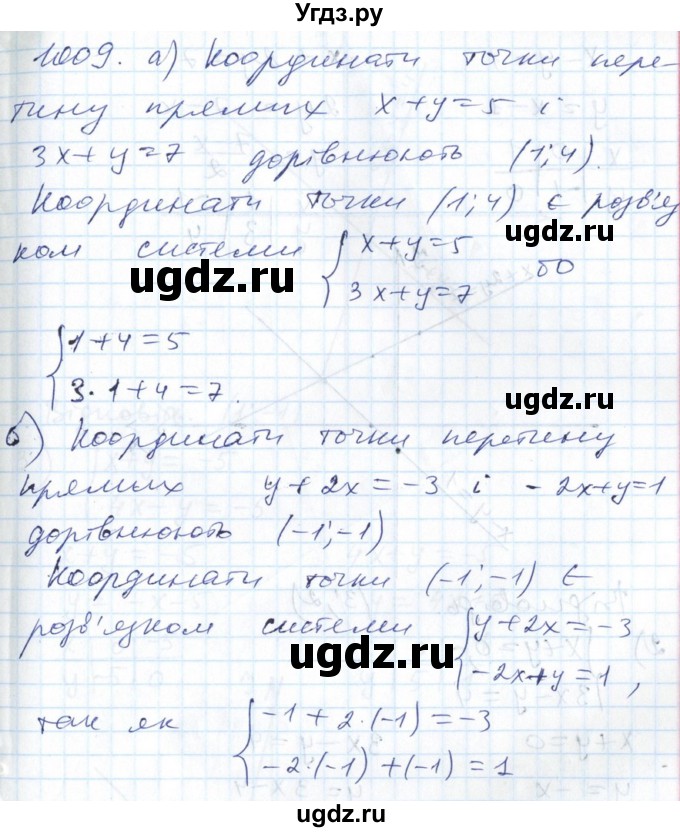 Угдз.ру
1009. а) Координати точки пере-
тину прямих x+y=5 і
3x+y=7 дорівнюють (1;4).
Координати точки (1;4) є розв'яз
ком системи { x+y=5 бо
3x+y=7
ugdz.ru
ugdz.ru
ugdz.ru
{ 1+4=5
3·1+4=7.
ugdz.ru
б) Координати точки перетину
прямых y+2x=-3 і -2x+y=1
дорівнюють (-1;-1)
ugdz.ru
Координати точки (-1;-1) є
розв'язком системи { y+2x=-3
-2x+y=1,
ugdz.ru
ugdz.ru
так як { -1+2·(-1)=-3
-2·(-1)+(-1)=1
ugdz.ru
ugdz.ru